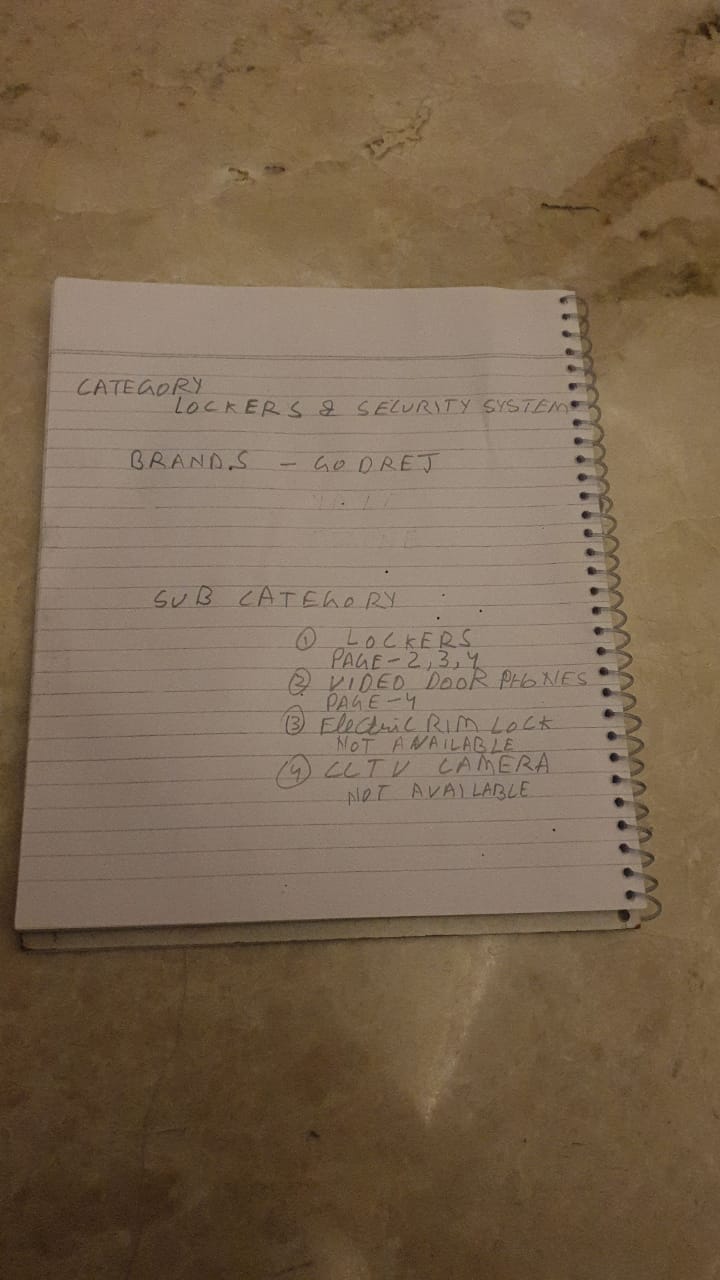 CATEGORY
LOCKERS & SECURITY SYSTEM
BRANDS - GODREJ
SUB CATEGORY
① LOCKERS
PAGE-2,3,4
② VIDEO DOOR PHONES
PAGE-4
③ Electric RIM LOCK
NOT AVAILABLE
④ CCTV CAMERA
NOT AVAILABLE